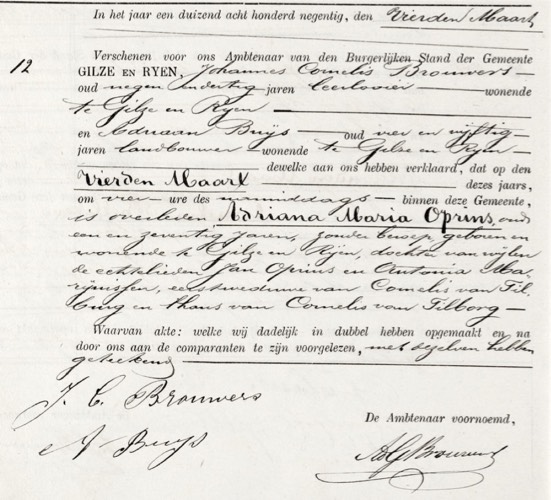 In het jaar een duizend acht honderd negentig, den Vierden Maart
12
Verschenen voor ons Ambtenaar van den Burgerlijken Stand der Gemeente
GILZE EN RYEN, Johannes Cornelis Brouwers
oud negen en dertig jaren leerlooier wonende
te Gilze en Ryen
en Adriaan Buijs oud vier en vijftig
jaren landbouwer wonende te Gilze en Ryen
dewelke aan ons hebben verklaard, dat op den
Vierden Maart dezes jaars,
om vier ure des voormiddags binnen deze Gemeente,
is overleden Adriana Maria Oprins, oud
een en zeventig jaren, zonder beroep, geboren en
wonende te Gilze en Rijen, dochter van wijlen
de echtelieden Jan Oprins en Antonia Ma-
rijnissen, eerst weduwe van Cornelis van Til-
burg en thans van Cornelis van Tilborg
Waarvan akte: welke wij dadelijk in dubbel hebben opgemaakt en na
door ons aan de comparanten te zijn voorgelezen, met dezelven hebben
geteekend
J. C. Brouwers
A Buijs
De Ambtenaar voornoemd,